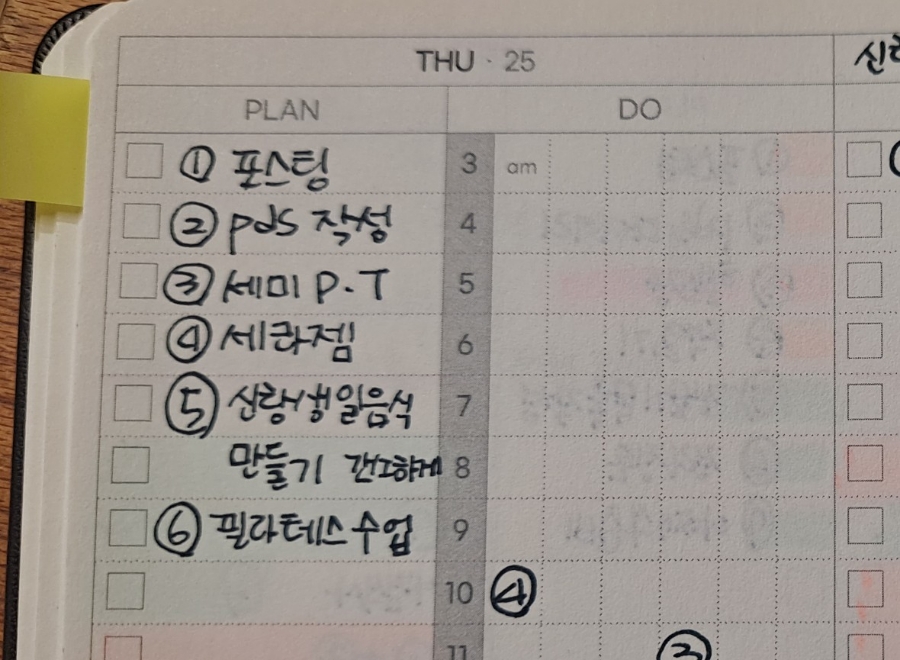 THU · 25
신랑
PLAN
DO
① 포스팅
3 am
② pds 작성
4
③ 세미 P.T
5
④ 세라젬
6
⑤ 신랑생일음식
7
만들기 간단하게
8
⑥ 필라테스 수업
9
10 ④
11 ③